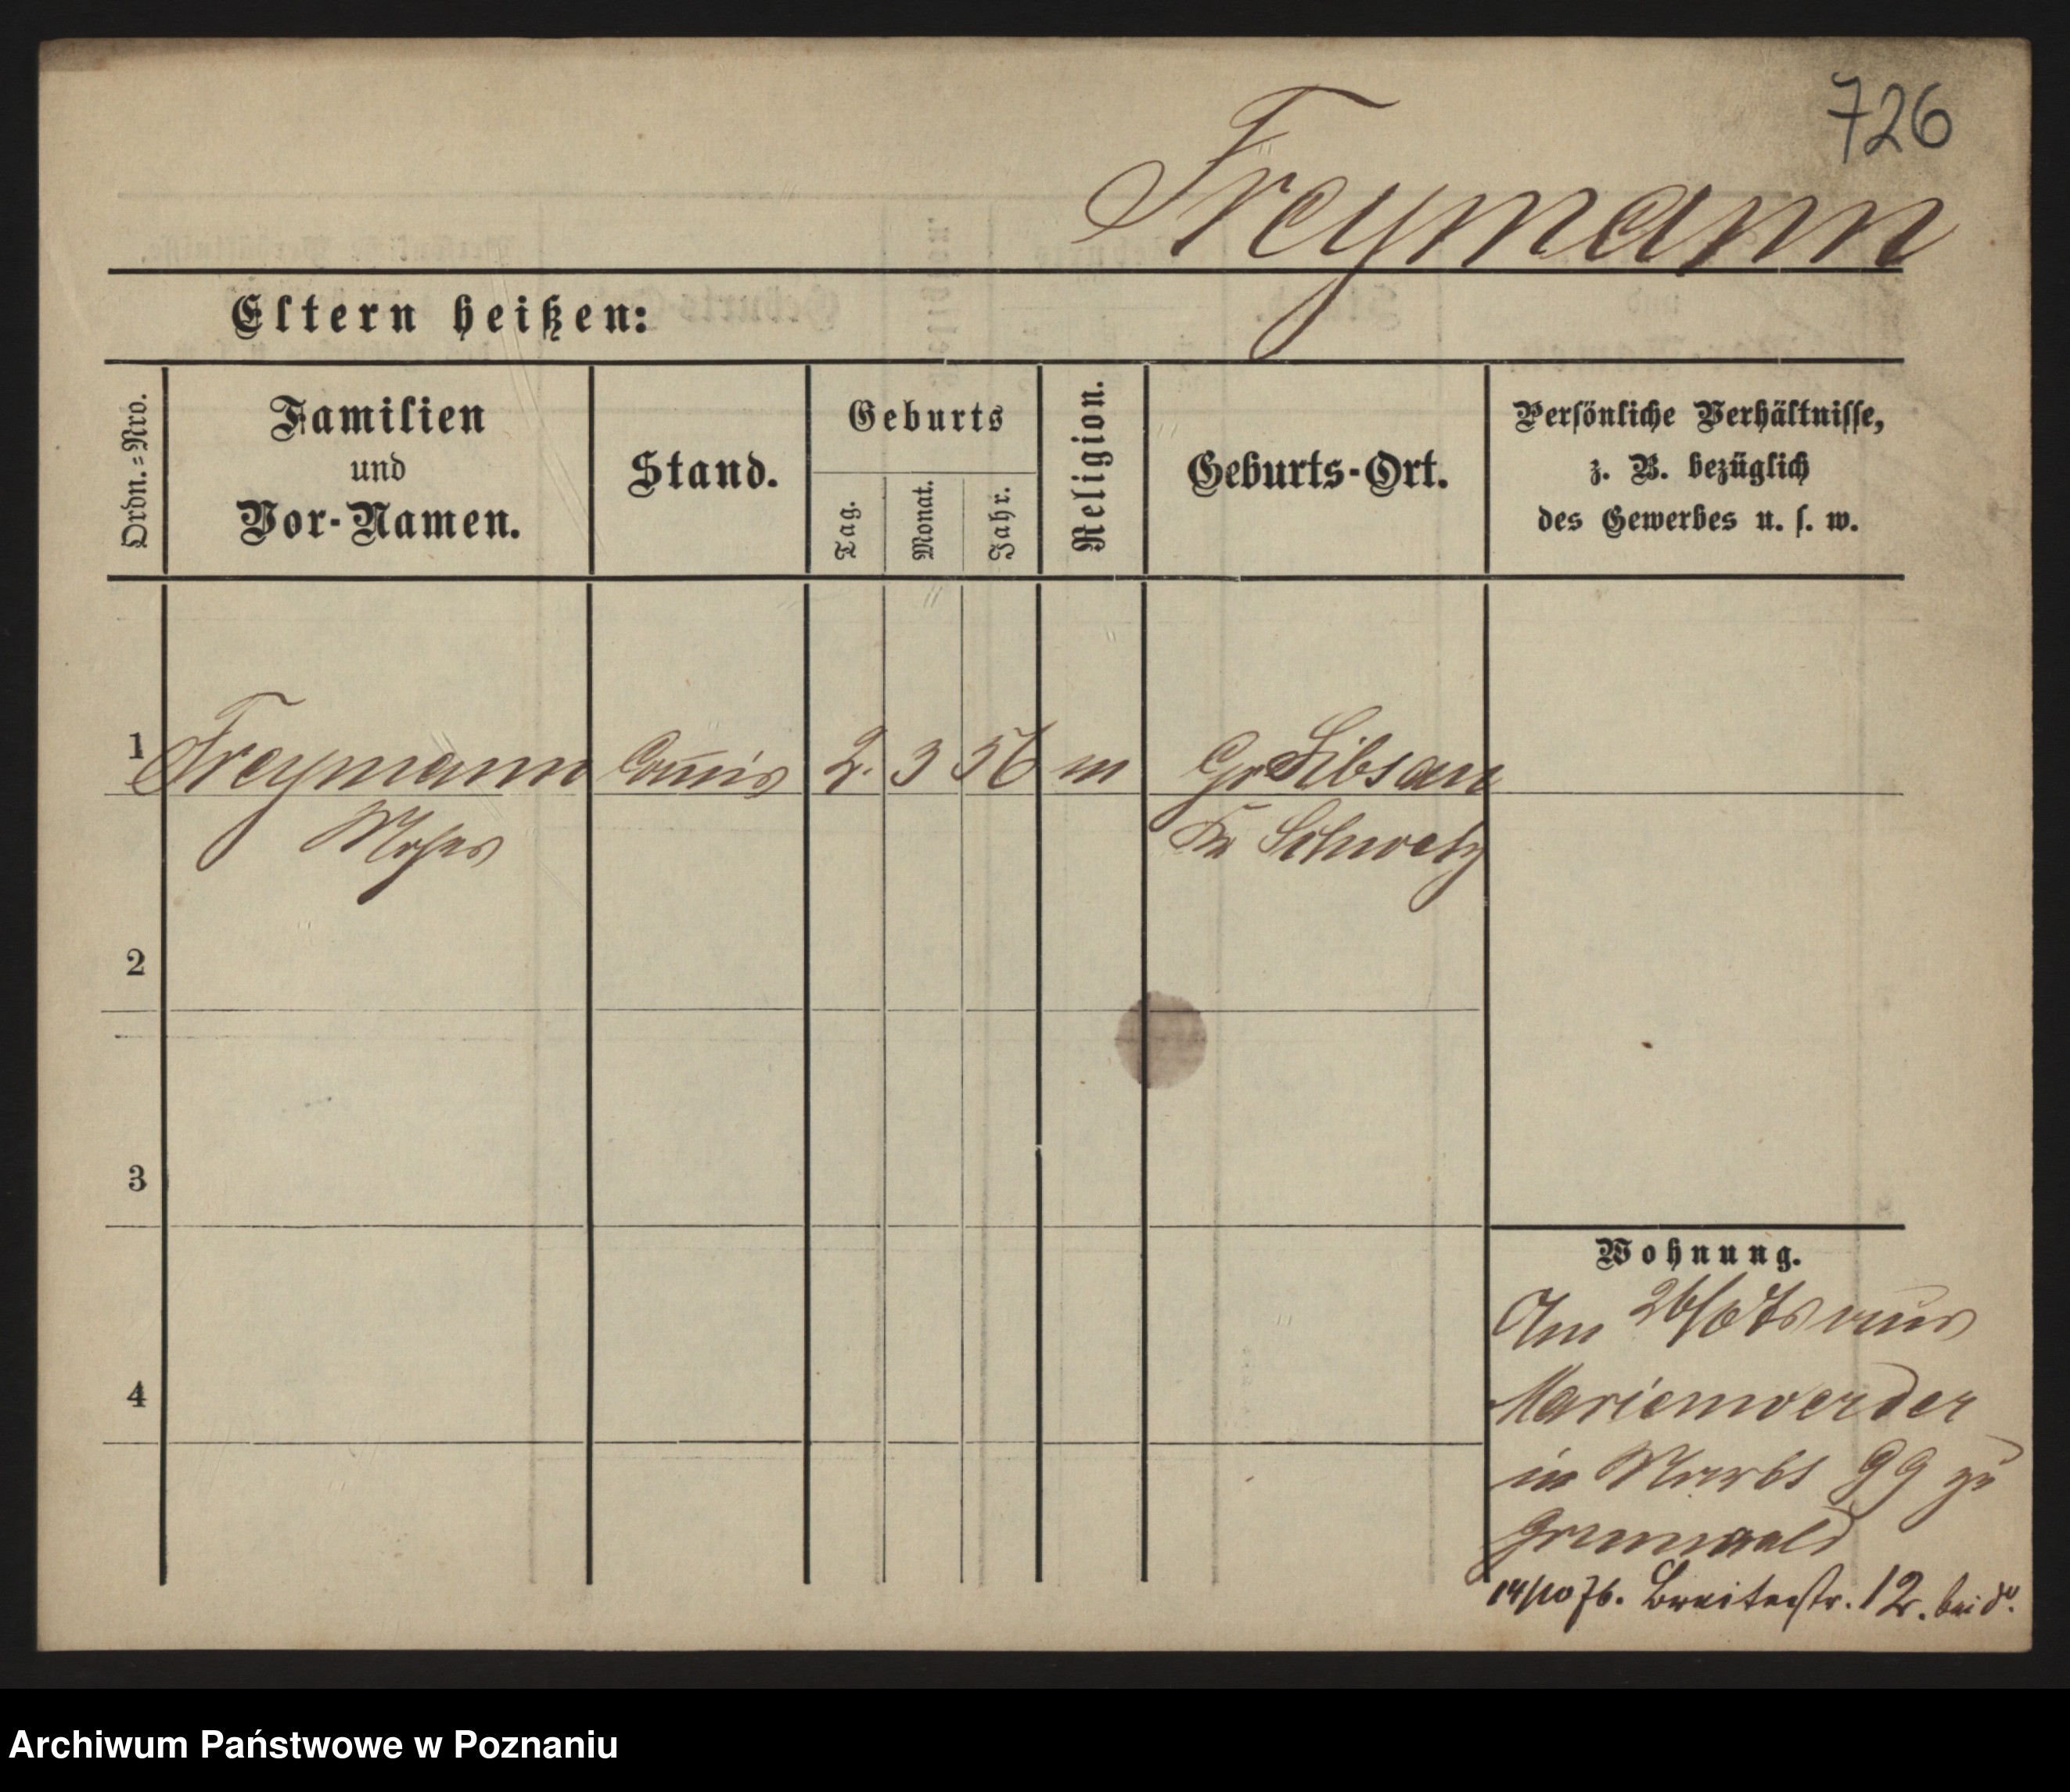 726
Freymann
Eltern heißen:
Ordn.=Nro.
Familien
und
Vor-Namen.
Stand.
Geburts
Tag.
Monat.
Jahr.
Religion.
Geburts-Ort.
Persönliche Verhältnisse,
z. B. bezüglich
des Gewerbes u. s. w.
1 Freymann Com̄is 2. 3 56 m Gr Sibsau
Moses Kr Schwetz
2
3
4
Wohnung.
Am 26/6 76 aus
Marienwerder
in Markt 99 zu
Grunwald
14/10 76. Breitestr. 12. bei do.
Archiwum Państwowe w Poznaniu